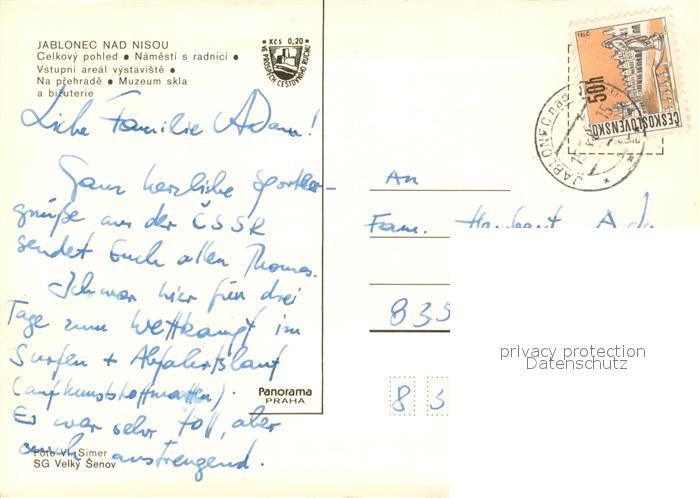 JABLONEC NAD NISOU
Celkový pohled • Náměstí s radnicí •
Vstupní areál výstaviště •
Na přehradě • Muzeum skla
a bižuterie
Kčs 0,20
VE PROSPĚCH CESTOVNÍHO RUCHU
TELČ
50h
ČESKOSLOVENSKO
JABLONEC nad
Liebe Familie Adam!
Ganz herzliche Sportler-
grüße aus der ČSSR
sendet Euch allen Thomas.
Ich war hier für drei
Tage zum Wettkampf im
Surfen + Abfahrtslauf
(auf Kunststoffmatten).
Es war sehr toll, aber
auch anstrengend.
An
Fam. Herbert Ada
835
8 3
privacy protection
Datenschutz
Panorama
PRAHA
Foto Vl. Simer
SG Velký Šenov